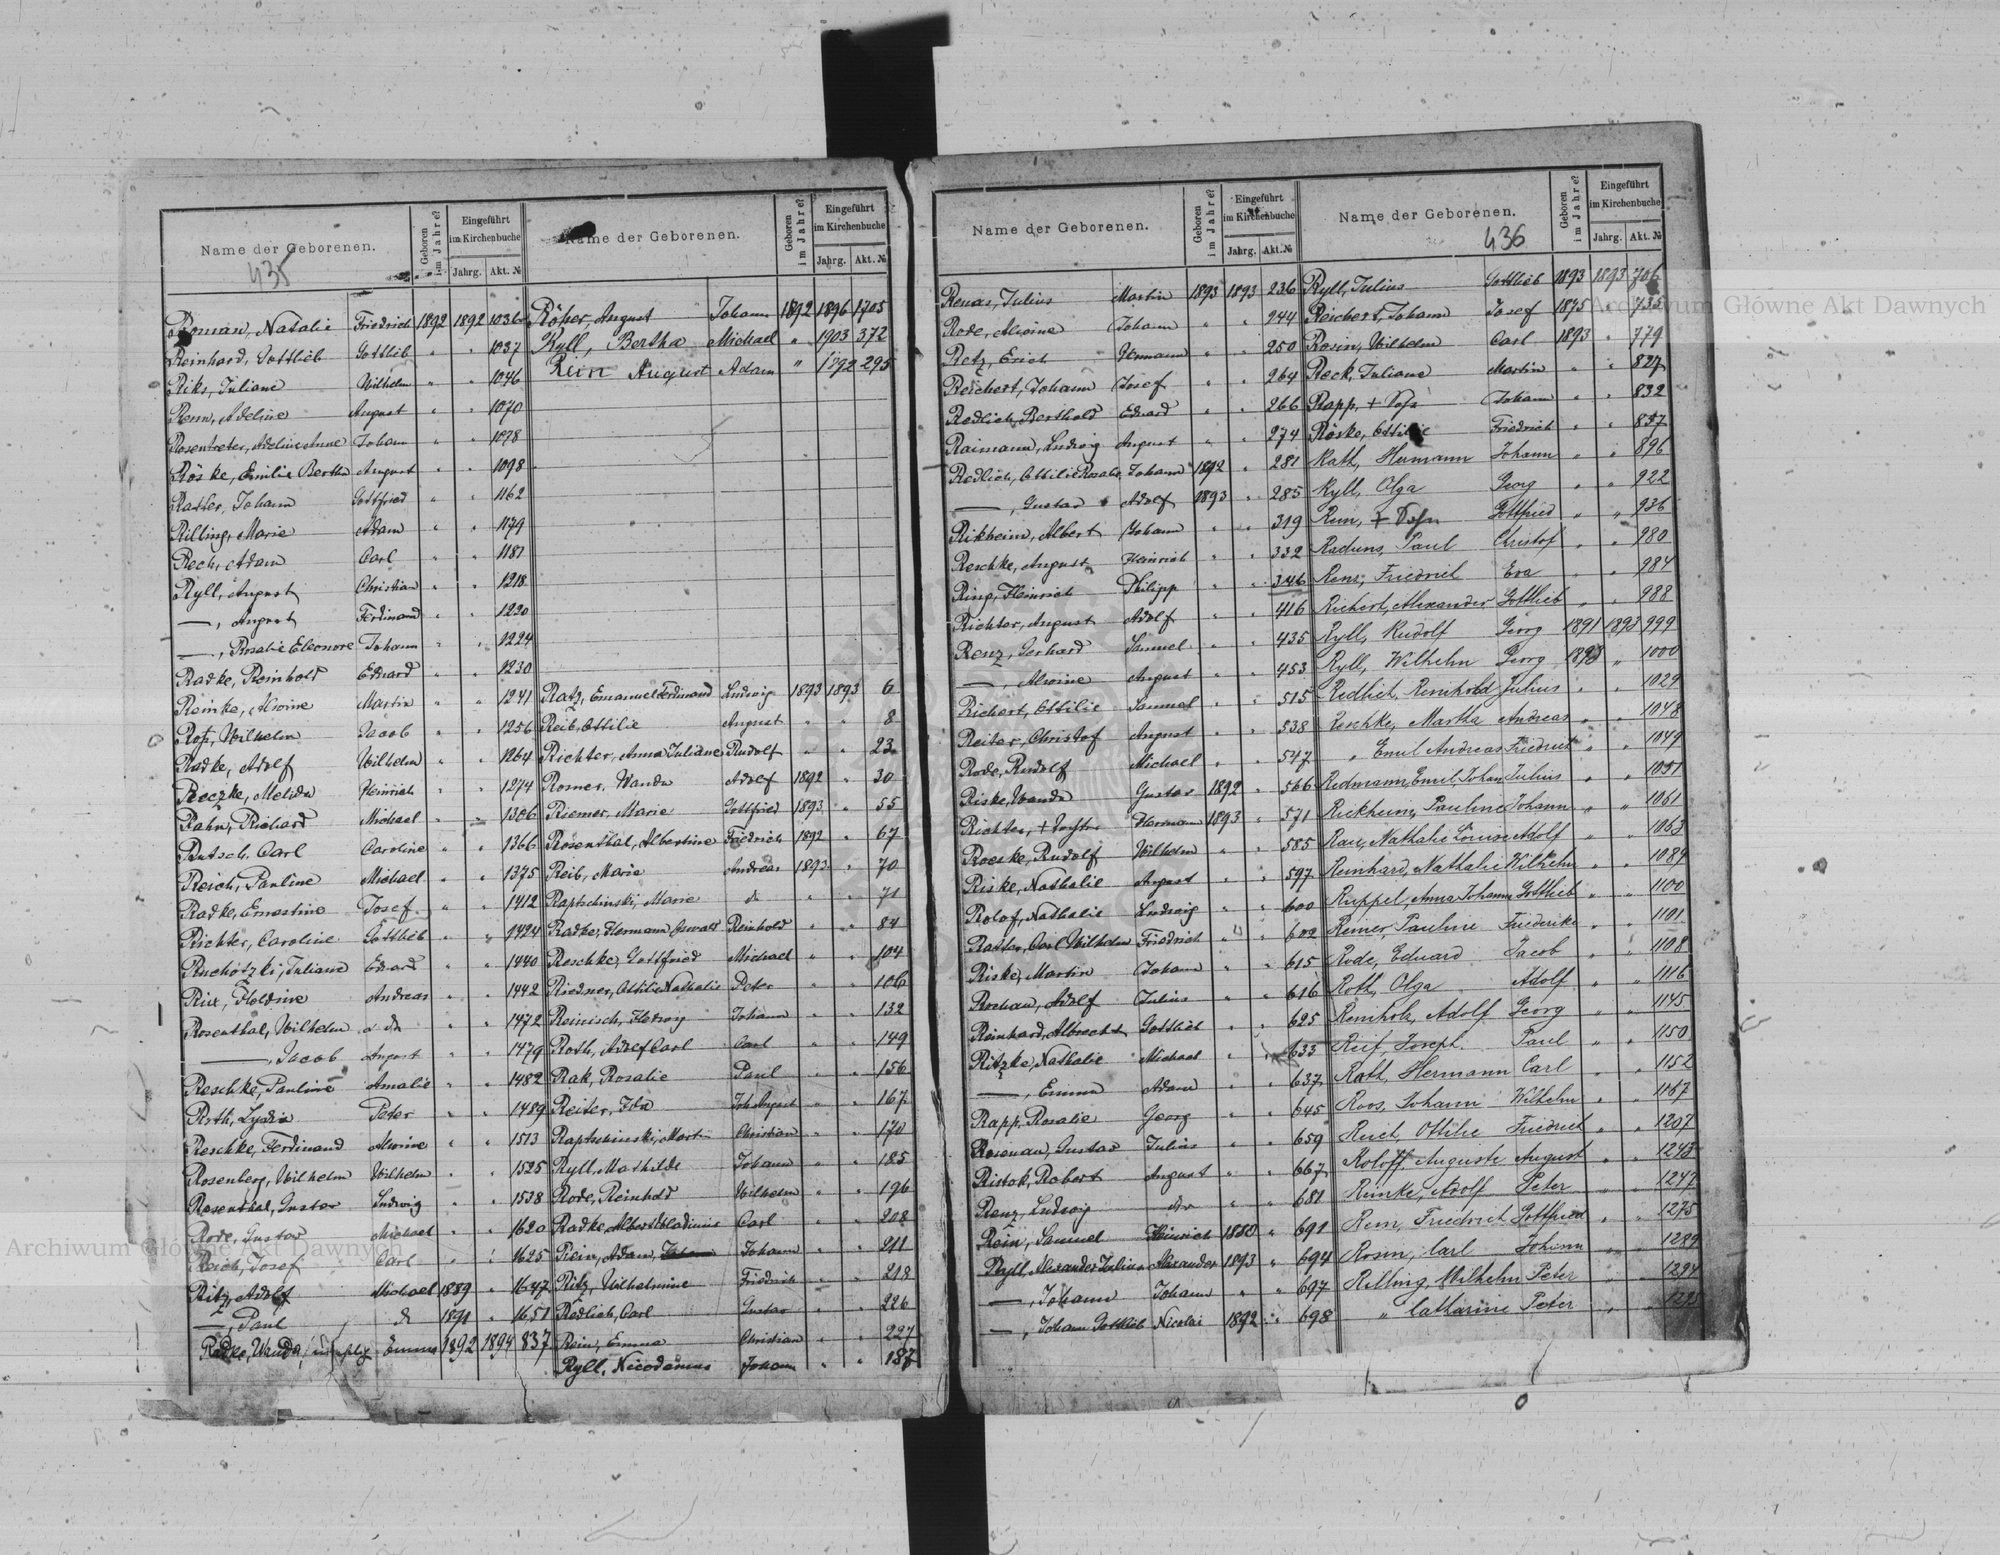 Name der Geborenen.
Geboren im Jahre?
Eingeführt im Kirchenbuche
Jahrg.
Akt. №
435
Roman, Natalie Friedrich 1892 1892 1036
Reinhard, Gottlieb Gottlieb " " 1037
Riks, Juliane Wilhelm " " 1046
Renn, Adeline August " " 1070
Rosentreter, Adeline Anne Johann " " 1078
Röske, Emilie Bertha August " " 1098
Johann Gottfried " " 1162
Rilling, Marie Adam " " 1179
Rech, Adam Carl " " 1181
Ryll, August Christian " " 1218
—, August Ferdinand " " 1220
—, Rosalie Eleonore Johann " " 1224
Radke, Reinhold Eduard " " 1230
Reinke, Alwine Martin " " 1241
Wilhelm Jacob " " 1256
Radke, Adolf Wilhelm " " 1264
Reczke, Melida Heinrich " " 1274
Rahn, Richard Michael " " 1306
Carl Caroline " " 1366
Reich, Pauline Michael " " 1375
Radke, Ernestine Josef " " 1412
Richter, Caroline Gottlieb " " 1424
Juliane Eduard " " 1440
Andreas " " 1442
Rosenthal, Wilhelm " 1472
—, Jacob August " " 1479
Reschke, Pauline Amalie " " 1482
Roth, Lydia Peter " " 1489
Reschke, Ferdinand Alwine " " 1513
Rosenberg, Wilhelm Wilhelm " " 1525
Rosenthal, Gustav Ludwig " " 1538
Rode, Gustav Michael " " 1620
Reich, Josef Carl " " 1625
Ritz, Adolf Michael 1889 " 1647
—, Paul do 1891 " 1651
Radke, Wanda, Emma 1892 1894 837
Name der Geborenen.
Geboren im Jahre?
Eingeführt im Kirchenbuche
Jahrg.
Akt. №
August Johann 1892 1896 1705
Ryll, Bertha Michael " 1903 372
Rein August Adam " 1892 295
Ratz, Emanuel Ferdinand Ludwig 1893 1893 6
Reib, Ottilie August " " 8
Richter, Anna Juliane Rudolf " " 23
Romer, Wanda Adolf 1892 " 30
Riemer, Marie Gottfried 1893 " 55
Rosenthal, Albertine Friedrich 1892 " 67
Reib, Marie Andreas 1893 " 70
Raptschinski, Marie do " " 71
Radke, Hermann Oswald Reinhold " " 84
Reschke, Gottfried Michael " " 104
Riedner, Ottilie Nathalie Peter " " 106
Reinisch, Hedwig Johann " " 132
Roth, Adolf Carl Carl " " 149
Rak, Rosalie Paul " " 156
Reiter, Ida Joh. August " " 167
Raptschinski, Martin Christian " " 170
Ryll, Mathilde Johann " " 185
Rode, Reinhold Wilhelm " " 196
Radke, Albert Carl " " 208
Rein, Adam, Johann " " 211
Ritz, Wilhelmine Friedrich " " 218
Redlich, Carl Gustav " " 226
Rein, Emma Christian " " 227
Ryll, Nicodemus Johann " " 187
Name der Geborenen.
Geboren im Jahre?
Eingeführt im Kirchenbuche
Jahrg.
Akt. №
Renas, Julius Martin 1893 1893 236
Rode, Alwine Johann " " 244
Retz, Erich Hermann " " 250
Reichert, Johann Josef " " 264
Redlich, Berthold Eduard " " 266
Raimann, Ludwig August " " 274
Redlich, Ottilie Rosalie Johann 1892 " 281
—, Gustav Adolf 1893 " 285
Rikheim, Albert Johann " " 319
Reschke, August Heinrich " " 332
Ring, Heinrich Philipp " " 346
Richter, August Adolf " " 416
Renz, Gerhard Samuel " " 435
—, Alwine August " " 453
Richert, Ottilie Samuel " " 515
Reiter, Christof August " " 538
Rode, Rudolf Michael " " 547
Riske, Wanda Gustav 1892 " 566
Richter, + Tochter Herman 1893 " 571
Roeske, Rudolf Wilhelm " " 585
Riske, Nathalie August " " 597
Rolof, Nathalie Ludwig " " 600
Carl Wilhelm Friedrich " " 612
Riske, Martin Johann " " 615
Adolf Julius " " 616
Reinhard, Albrecht Gottlieb " " 625
Ritzke, Nathalie Michael " " 633
—, Emma Adam " " 637
Rapp, Rosalie Georg " " 645
Rosenau, Gustav Julius " " 659
Ristok, Robert August " " 667
Renz, Ludwig do " " 681
Rein, Samuel Heinrich 1880 " 691
Ryll, Alexander Julius Alexander 1893 " 694
—, Johann Johann " " 697
—, Johann Gottlieb Nicolai 1892 " 698
Name der Geborenen.
Geboren im Jahre?
Eingeführt im Kirchenbuche
Jahrg.
Akt. №
436
Ryll, Julius Gottlieb 1893 1893 706
Reichert, Johann Josef 1875 " 735
Rosin, Wilhelm Carl 1893 " 779
Reck, Juliane Martin " " 827
Rapp, + Sohn Johann " " 832
Röske, Ottilie Friedrich " " 857
Rath, Hermann Johann " " 896
Ryll, Olga Georg " " 922
Rein, + Sohn Gottfried " " 936
Paul Christof " " 980
Renz, Friedrich Eva " " 984
Richert, Alexander Gottlieb " " 988
Ryll, Rudolf Georg 1891 1893 999
Ryll, Wilhelm Georg 1893 " 1000
Redlich, Reinhold Julius " " 1029
Reschke, Martha Andreas " " 1048
" Emil Andreas Friedrich " " 1049
Redmann, Emil Johan Julius " " 1051
Rickheim, Pauline Johann " " 1061
Rau, Nathalie Louise Adolf " " 1063
Reinhard, Nathalie Wilhelm " " 1089
Ruppel, Anna Johanna Gottlieb " " 1100
Reimer, Pauline Friederike " " 1101
Rode, Eduard Jacob " " 1108
Roth, Olga Adolf " " 1116
Reinholz, Adolf Georg " " 1145
Reif, Joseph Paul " " 1150
Rath, Hermann Carl " " 1152
Roos, Johann Wilhelm " " 1167
Reich, Ottilie Friedrich " " 1207
Roloff, Auguste August " " 1243
Reinke, Adolf Peter " " 1247
Rein, Friedrich Gottfried " " 1275
Rosin, Carl Johann " " 1289
Rilling, Wilhelm Peter " " 1294
" Catharine Peter " " 1295
Archiwum Główne Akt Dawnych
Archiwum Główne Akt Dawnych